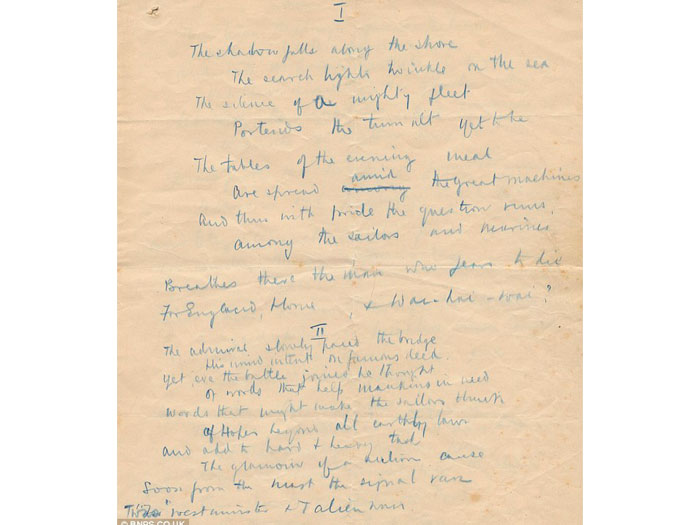 I
The shadow falls along the shore
The search lights twinkle on the sea
The silence of a mighty fleet
Portends the tumult yet to be
The tables of the evening meal
Are spread amid the great machines
And thus with pride the question runs
Among the sailors and marines
Breathes there the man who fears to die
For England, Home, & Wai-hai-wai?
II
The admiral slowly paced the bridge
His mind intent on famous deed
Yet ere the battle joined he thought
Of words that help mankind in need
Words that might make the sailors think
Of Hopes beyond all earthly laws
and add to hard & heavy task
The glamour of a cause
Soon from the mast the signal ran
Westminster & Talienwan
© BNPS.CO.UK